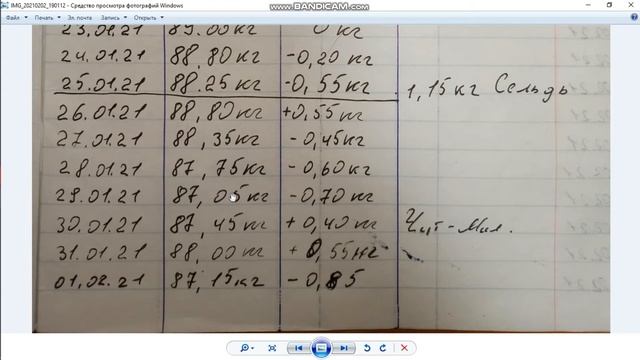 www.BANDICAM.com
IMG_20210202_190112 - Средство просмотра фотографий Windows
Файл Печать Эл. почта Запись Открыть
23.01.21 89.00кг 0 кг
24.01.21 88,80кг -0,20кг
25.01.21 88.25кг -0,55кг 1,15кг Сельдь
26.01.21 88,80кг +0,55кг
27.01.21 88,35кг -0,45кг
28.01.21 87,75кг -0,60кг
29.01.21 87,05кг -0,70кг
30.01.21 87,45кг +0,40кг Чит-Мил.
31.01.21 88,00кг +0,55кг
01.02.21 87,15кг -0,85